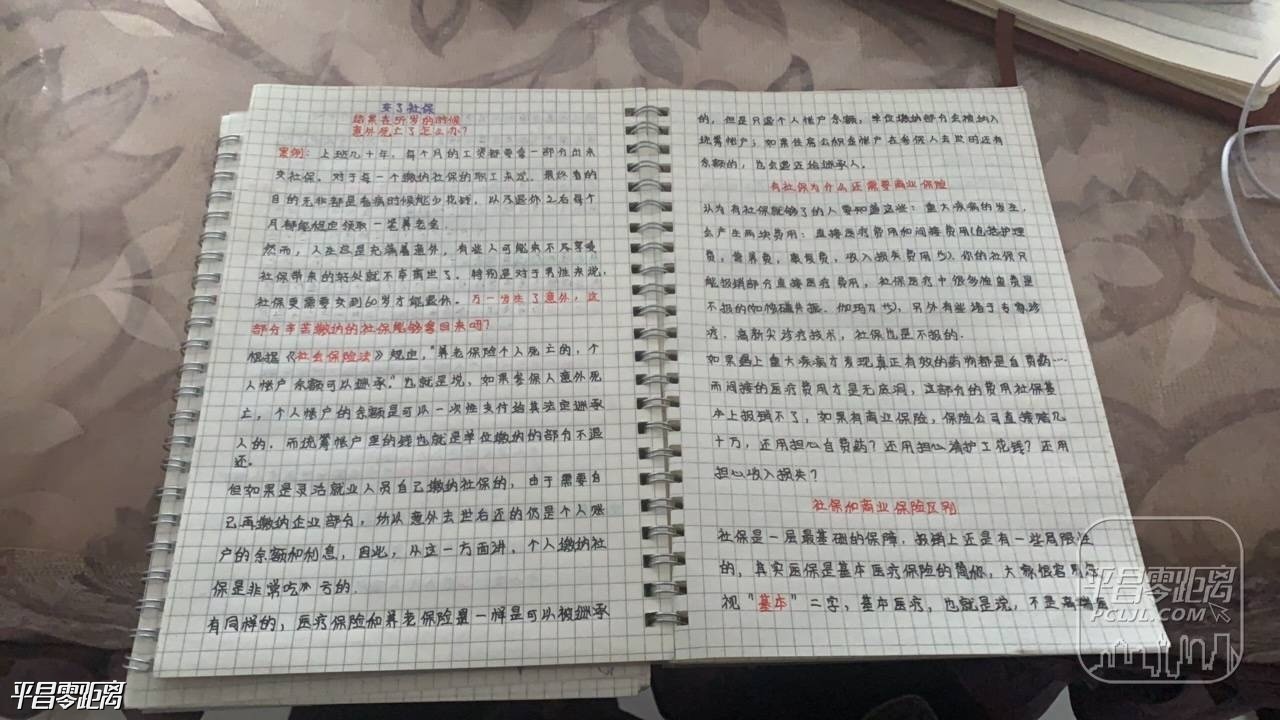 交了社保
结果在55岁的时候
意外死亡了怎么办?
案例:上班几十年,每个月的工资都要拿一部分出来
交社保。对于每一个缴纳社保的职工来说,最终的
目的无非都是看病时候能少花钱,以及退休之后每个
月都能相应领取一笔养老金
然而,人生总是充满着意外,有些人可能来不及享受
社保带来的好处就不幸离世了。特别是对于男性来说,
社保更需要交到60岁才能退休。万一发生了意外,这
部分辛苦缴纳的社保能够拿回来吗?
根据《社会保险法》规定,"养老保险个人死亡的,个
人帐户余额可以继承。"也就是说,如果参保人意外死
亡,个人帐户的余额是可以一次性支付给其法定继承
人的。而统筹帐户里的钱也就是单位缴纳的部分不退
还。
但如果是灵活就业人员自己缴纳社保的,由于需要自
己再缴纳企业部分,所以意外去世后还的仍是个人账
户的余额和利息,因此,从这一方面讲,个人缴纳社
保是非常吃亏的。
有同样的,医疗保险和养老保险是一样是可以被继承
的,但是只退个人帐户余额,单位缴纳部分会被纳入
统筹帐户;如果住房公积金帐户在参保人去世时还有
余额的,也会退还给继承人。
有社保为什么还需要商业保险
认为有社保就够了的人要知道这些:重大疾病的发生,
会产生两块费用:直接医疗费用和间接费用(包括护理
费,营养费,康复费,收入损失费用等)、你的社保只
能报销部分直接医疗费用,社保医疗中很多检查费是
不报的(如核磁共振、伽玛刀等),另外有些谱于专家诊
疗、高新尖诊疗技术,社保也是不报的.
如果遇上重大疾病才发现真正有效的药物都是自费药…
而间接的医疗费用才是无底洞,这部分的费用社保基
本上报销不了,如果有商业保险,保险公司直接赔几
十万,还用担心自费药?还用担心请护工花钱?还用
担心收入损失?
社保和商业保险区别
社保是一层最基础的保障,报销上还是有一些局限性
的,其实医保是基本医疗保险的简称,大家很容易忽
视"基本"二字,基本医疗,也就是说,不是高端医
平昌零距离
PCLJL.COM
平昌零距离